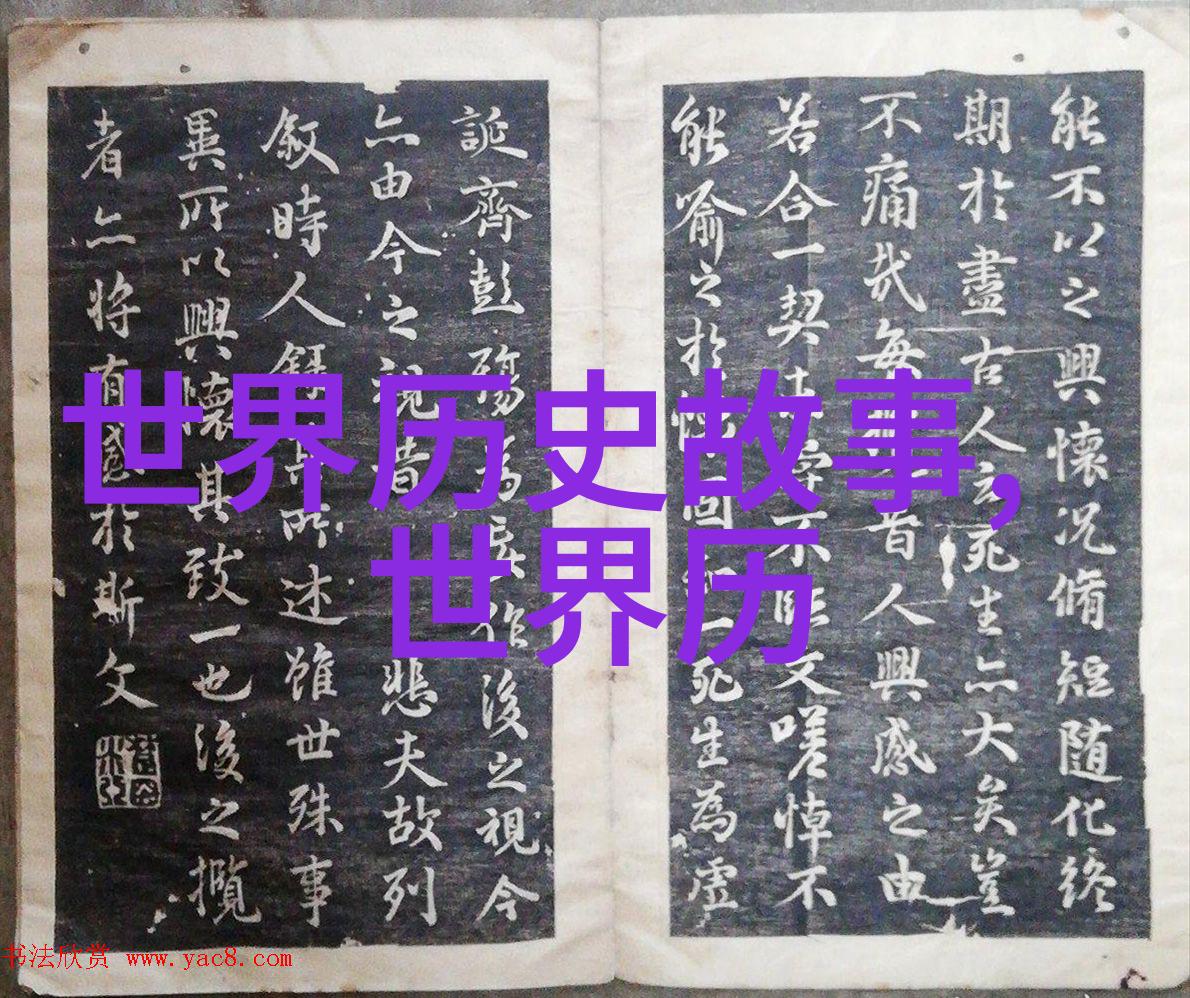 能不以之興懷况脩短随化終
期於盡古人云死生亦大矣豈
不痛哉每昔人興感之由
若合一契不臨文嗟悼不
能喻之於固一死生為虛
誕齊彭殤為作後之視今
亦由今之視昔悲夫故列
叙時人所述雖世殊事
異所以興懷其致一也後之攬
者亦将有感於斯文
世界历史故事,
世界历
书法欣赏 www.yac8.com